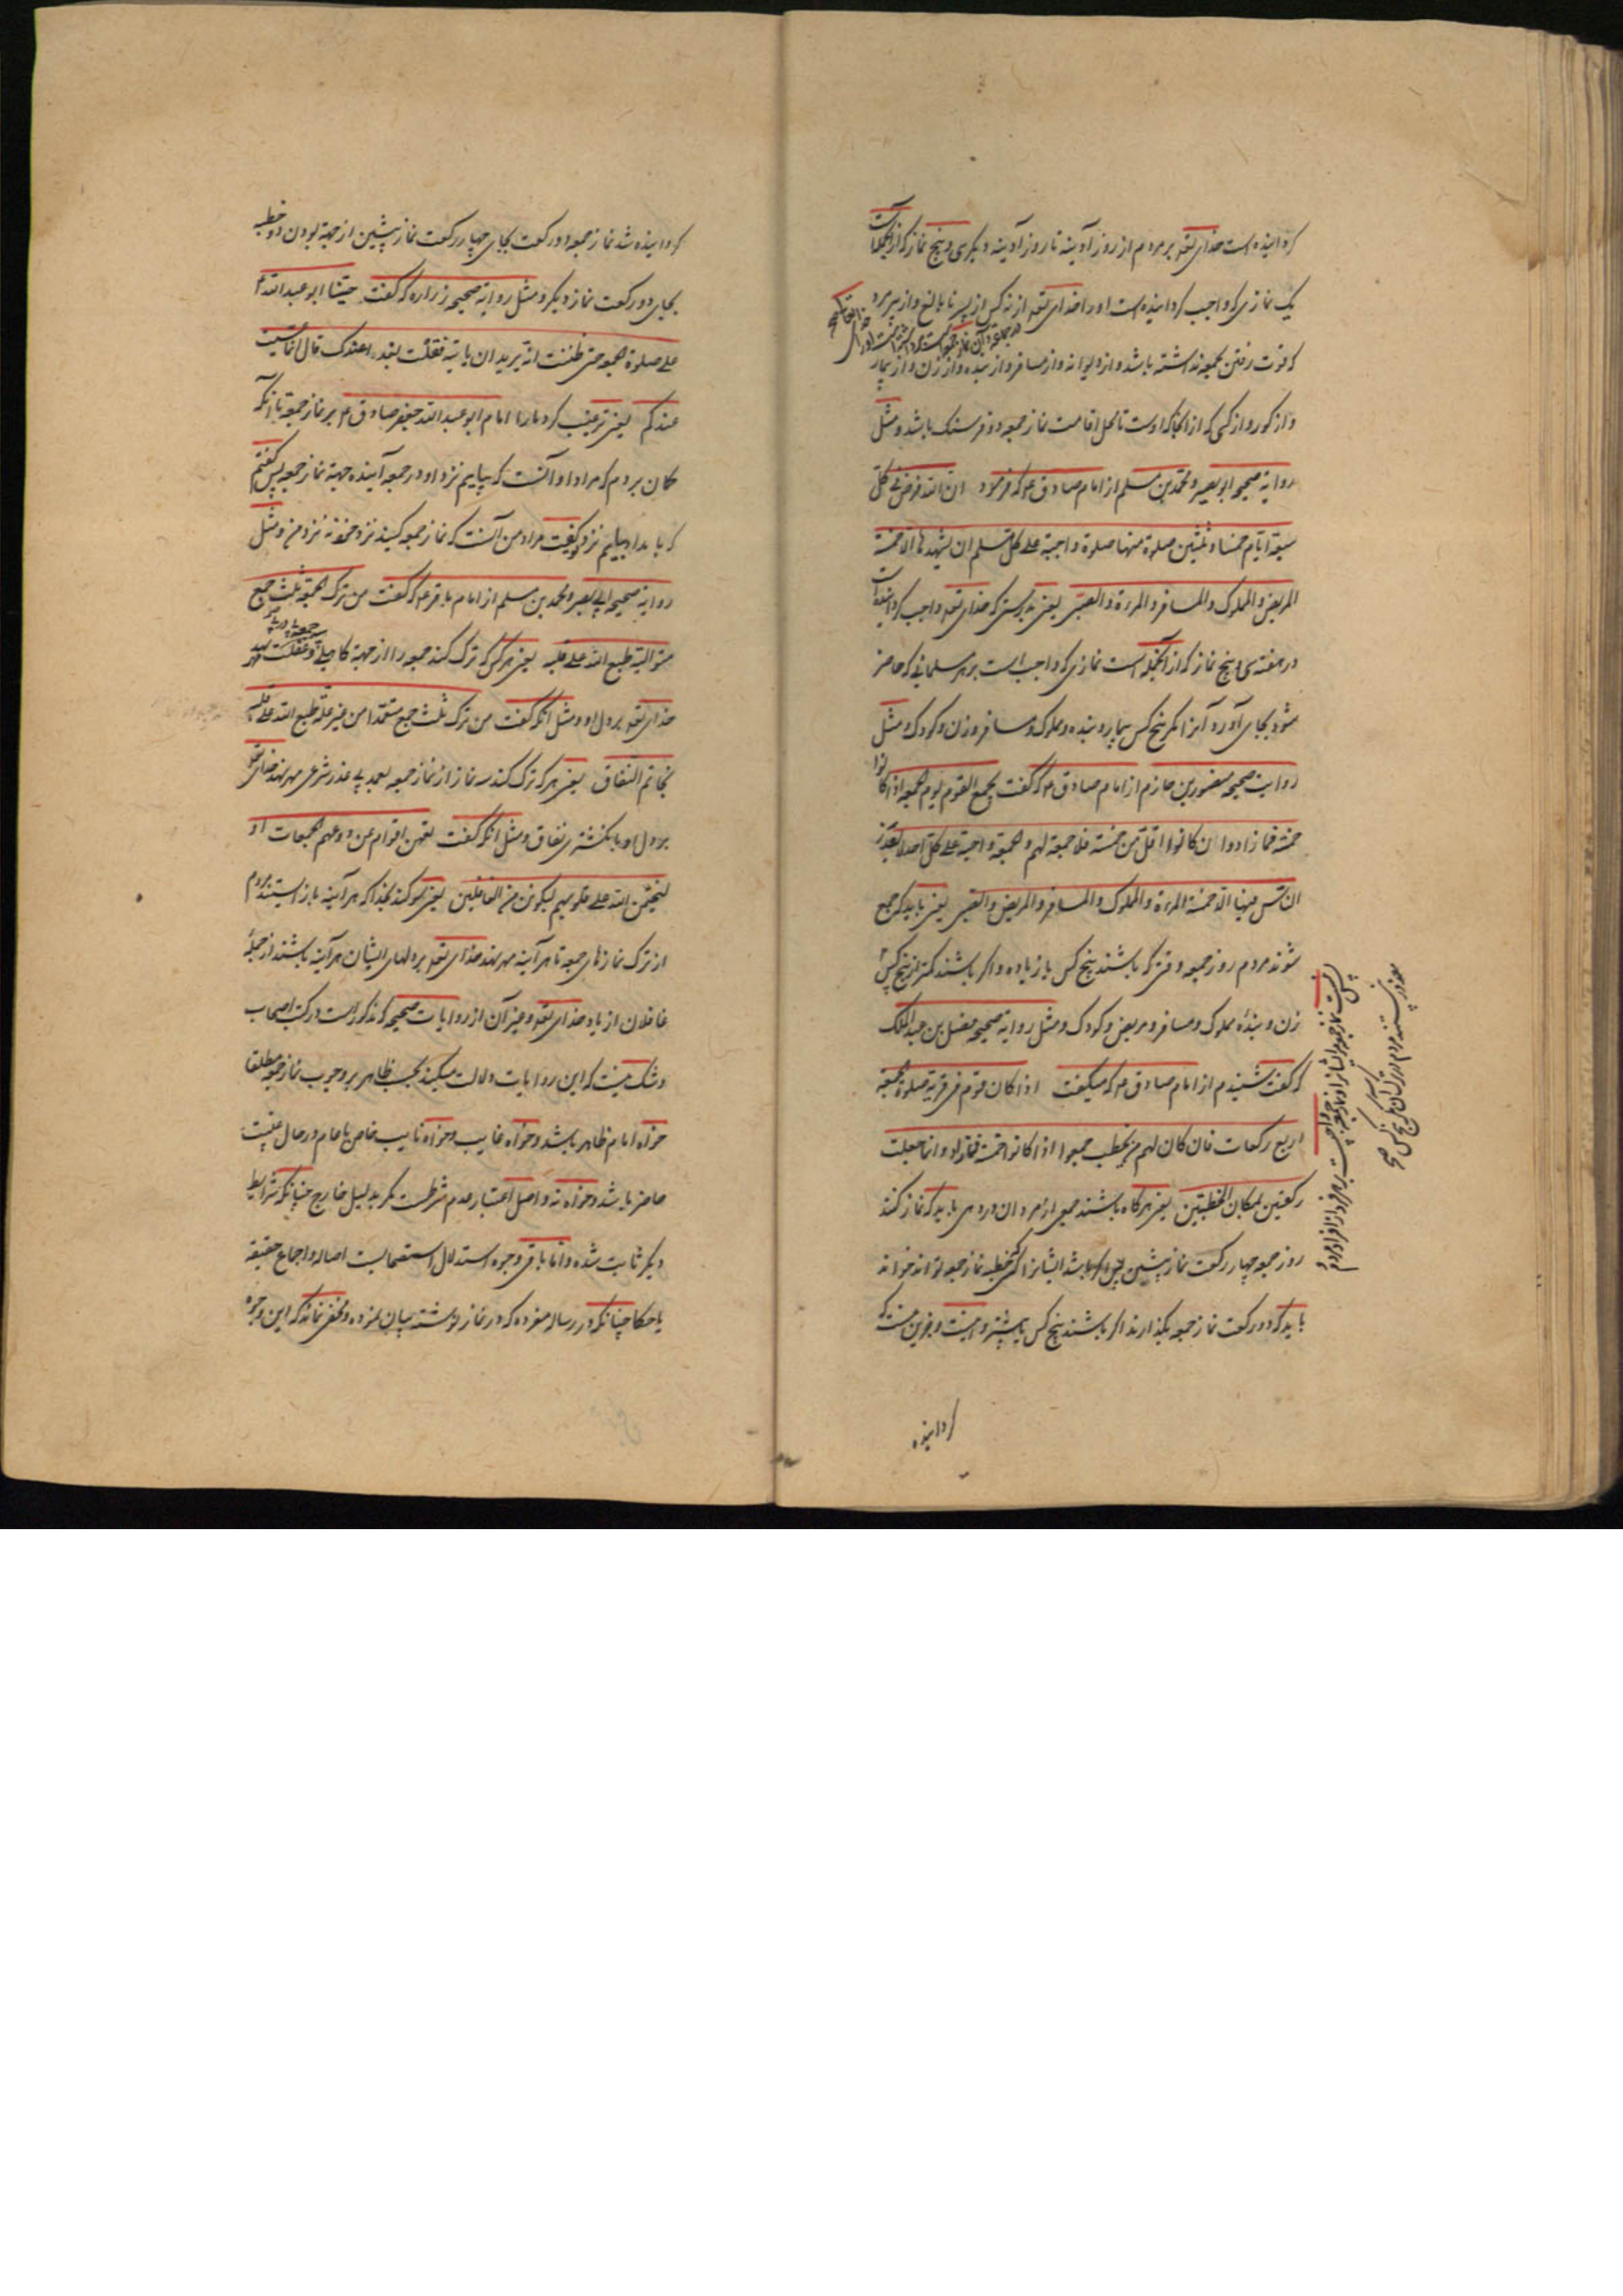 کردانیده است خدای تعه بر مردم از روز آدینه تا روز آدینه دیکر سی و پنج نماز که از انجمله است
یک نمازی که واجب کردانیده است او را خدای تعه از نه کس از پسر نابالغ و از پیر مرد
که قوت رفتن بجمعه نداشته باشد و از دیوانه و از مسافر و از بنده و از زن و از بیمار
و از کور و از کسی که از انجا که اوست تا محل اقامت نماز جمعه دو فرسنک باشد و مثل
روایة صحیح ابو بصیر و محمد بن مسلم از امام صادق ع که فرمود ان الله فرض فی کل
سبعة ایام خمسا و ثلثین صلوة منها صلوة واجبة علی کل مسلم ان یشهدها الا خمسة
المریض و المملوک و المسافر و المرءة و الصبی یعنی بدرستی که خدای تعه واجب کردانیده است
در هفته سی و پنج نماز که از انجمله است نمازی که واجب است بر هر مسلمانی که حاضر
شود بجای آورد آنرا مکر پنج کس بیمار و بنده و مملوک و مسافر و زن و کودک و مثل
روایت صحیح منصور بن حازم از امام صادق ع که گفت یجمع القوم یوم الجمعه اذا کانوا
خمسة فما زادوا ان کانوا اقل من خمسة فلا جمعة لهم و الجمعة واجبة علی کل احد لا یعذر
الناس فیها الا خمسة المرءة و المملوک و المسافر و المریض و الصبی یعنی باید که جمع
شوند مردم روز جمعه وقتی که باشند پنج کس یا زیاده و اکر باشند کمتر از پنج کس
پس نیست نماز جمعه ایشانرا و نماز جمعه واجبست بر هر فردی از افراد مردم
معذور نیستند مردم در ترک آن مکر پنج کس صح
زن و بندهٔ مملوک و مسافر و مریض و کودک و مثل روایة صحیح مفضل بن عبد الملک
که گفت شنیدم از امام صادق ع که میگفت اذا کان قوم فی قریة صلوا الجمعة
اربع رکعات فان کان لهم من یخطب جمعوا اذا کانوا خمسة فما زاد و انما جعلت
رکعتین لمکان الخطبتین یعنی هرکاه باشند جمعی از مردان در دهی باید که نماز کنند
روز جمعه چهار رکعت نماز پیشین پس اکر باشد ایشانرا کسی که خطبه نماز جمعه تواند خواند
باید که دو رکعت نماز جمعه بکذارند اکر باشند پنج کس یا بیشتر و
کردانیده
کردانیده شد نماز جمعه دو رکعت بجای چهار رکعت نماز پیشین از جهة بودن دو خطبه
بجای دو رکعت نماز دیکر و مثل روایة صحیح زراره که گفت حثنا ابو عبد الله ع
علی صلوة الجمعه حتی ظننت انه یرید ان یاتیه فقلت نغدو علیک قال انما عنیت
عندکم یعنی ترغیب کرد ما را امام ابو عبد الله جعفر صادق ع بر نماز جمعه تا انکه
کمان بردم که مراد او آنست که بیاییم نزد او در جمعه آینده جهة نماز جمعه پس گفتم
که بامداد بیاییم نزد تو گفت مراد من آنست که نماز جمعه کنید نزد خود نه نزد من و مثل
روایة صحیح ابی بصیر و محمد بن مسلم از امام باقر ع که گفت من ترک الجمعة ثلث جمع
متوالیة طبع الله علی قلبه یعنی هر کس که ترک کند جمعه را از جهة کاهلی و غفلت سه جمعه پی در پی مهر نهد
خدای تعه بر دل او و مثل انکه گفت من ترک ثلث جمع متعمدا من غیر علة طبع الله علی قلبه
بخاتم النفاق یعنی هر که ترک کند سه نماز از نماز جمعه بعمد بی عذر شرعی مهر نهد خدای تعه
بر دل او بانکشتری نفاق و مثل انکه گفت لینتهین اقوام عن ودعهم الجمعات او
لیختمن الله علی قلوبهم لیکونن من الغافلین یعنی سوکند بخدا که هر آینه باز استیند مردم
از ترک نمازهای جمعه تا هر آینه مهر نهد خدای تعه بر دلهای ایشان هر آینه باشند از جملهٔ
غافلان از یاد خدای تعه و جز آن از روایات صحیحه که مذکور است در کتب اصحاب
و شک نیست که این روایات دلالت میکند بحسب ظاهر بر وجوب نماز جمعه مطلقا
خواه امام ظاهر باشد و خواه غایب و خواه نایب خاص یا عام در حال غیبت
حاضر باشد و خواه نه و اصل اعتبار عدم شرطست مکر بدلیل خارج چنانکه شرایط
دیکر ثابت شده و اما باقی وجوه استدلال استصحابست اصاله و اجماع حقیقة
یا حکما چنانکه در رساله مفرده که در نماز نوشته بیان نموده و مخفی نماند که این وجوه